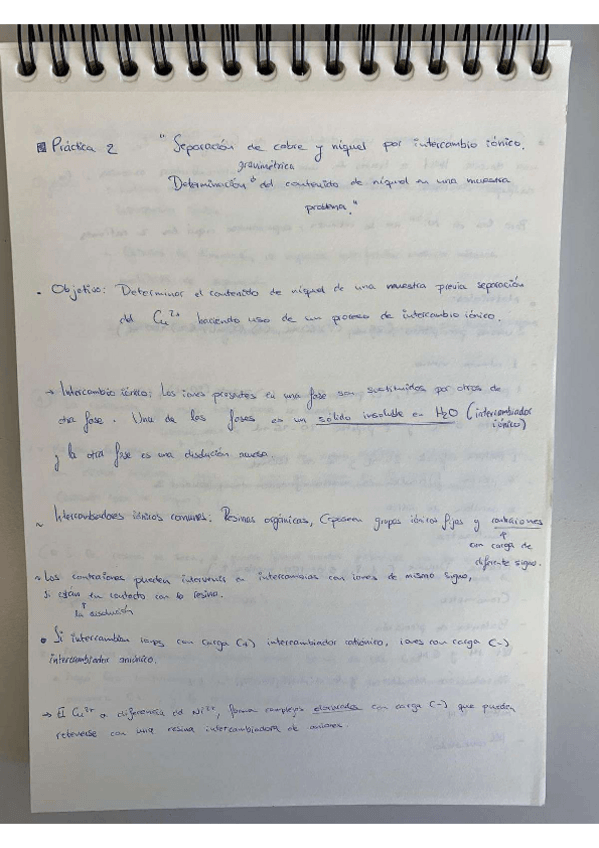 Práctica 2 "Separación de cobre y níquel por intercambio iónico.
gravimétrica
Determinación del contenido de níquel en una muestra
problema."
• Objetivo: Determinar el contenido de níquel de una muestra previa separación
del Cu2+ haciendo uso de un proceso de intercambio iónico.
→ Intercambio iónico: Los iones presentes en una fase son sustituidos por otros de
otra fase. Una de las fases es un sólido insoluble en H2O (intercambiador
iónico)
y la otra fase es una disolución acuosa.
~ Intercambiadores iónicos comunes: Resinas orgánicas, (poseen grupos iónicos fijos y contraiones
↑
con carga de
diferente signo.
~ Los contraiones pueden intervenir en intercambios con iones de mismo signo,
si están en contacto con la resina.
la disolución
• Si intercambian iones con carga (+) intercambiador catiónico, iones con carga (-)
intercambiador aniónico.
→ El Cu2+ a diferencia del Ni2+, forma complejos clorurados con carga (-) que pueden
retenerse con una resina intercambiadora de aniones.